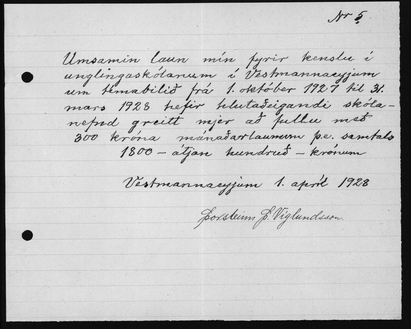 Nr 5
Umsamin laun mín fyrir kenslu í
unglingaskólanum í Vestmannaeyjum
um tímabilið frá 1. október 1927 til 31.
mars 1928 hefir hlutaðeigandi skóla-
nefnd greitt mjer að fullu með
300 króna mánaðarlaunum þe. samtals
1800 - átján hundruð - krónum
Vestmannaeyjum 1. apríl 1928
Þorsteinn Þ. Víglundsson